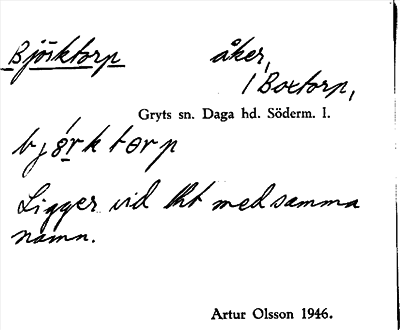 Björktorp åker,
i Boxtorp,
Gryts sn. Daga hd. Söderm. l.
bjǿrktorp
Ligger vid lht med samma
namn.
Artur Olsson 1946.